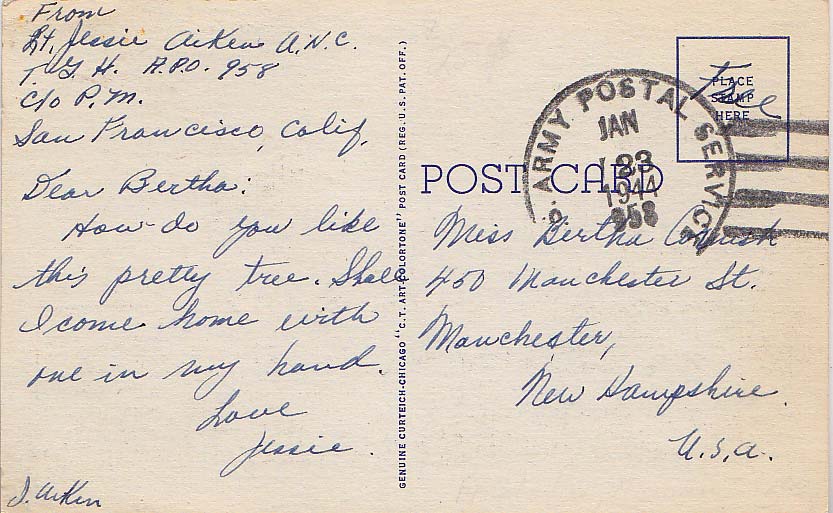 From
Lt. Jessie Aiken A.N.C.
T. G. H. A.P.O. 958
c/o P.M.
San Francisco, Calif.
Dear Bertha:
How do you like
this pretty tree. Shall
I come home with
one in my hand.
Love
Jessie.
J. Aiken
GENUINE CURTEICH-CHICAGO "C.T. ART-COLORTONE" POST CARD (REG. U.S. PAT. OFF.)
POST CARD
PLACE
STAMP
HERE
Free
ARMY POSTAL SERVICE
JAN
23
1944
958
Miss Bertha Cornish
450 Manchester St.
Manchester,
New Hampshire.
U.S.A.